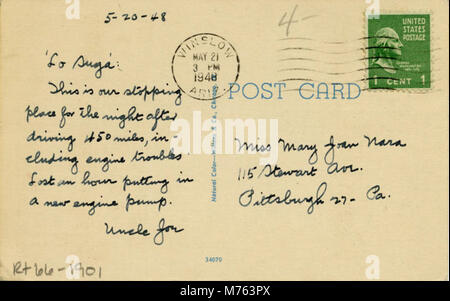 5-20-48
4-
'Lo Suga':
This is our stopping
place for the night after
driving 450 miles, in-
cluding engine troubles
Lost an hour putting in
a new engine pump.
Uncle Joe
Rt 66-1901
WINSLOW
MAY 21
3 PM
1948
ARIZ.
UNITED STATES
POSTAGE
1 CENT 1
POST CARD
Miss Mary Joan Nara
115 Stewart Ave.
Pittsburgh 27- Pa.
34070
alamy
Image ID: M763PX
www.alamy.com